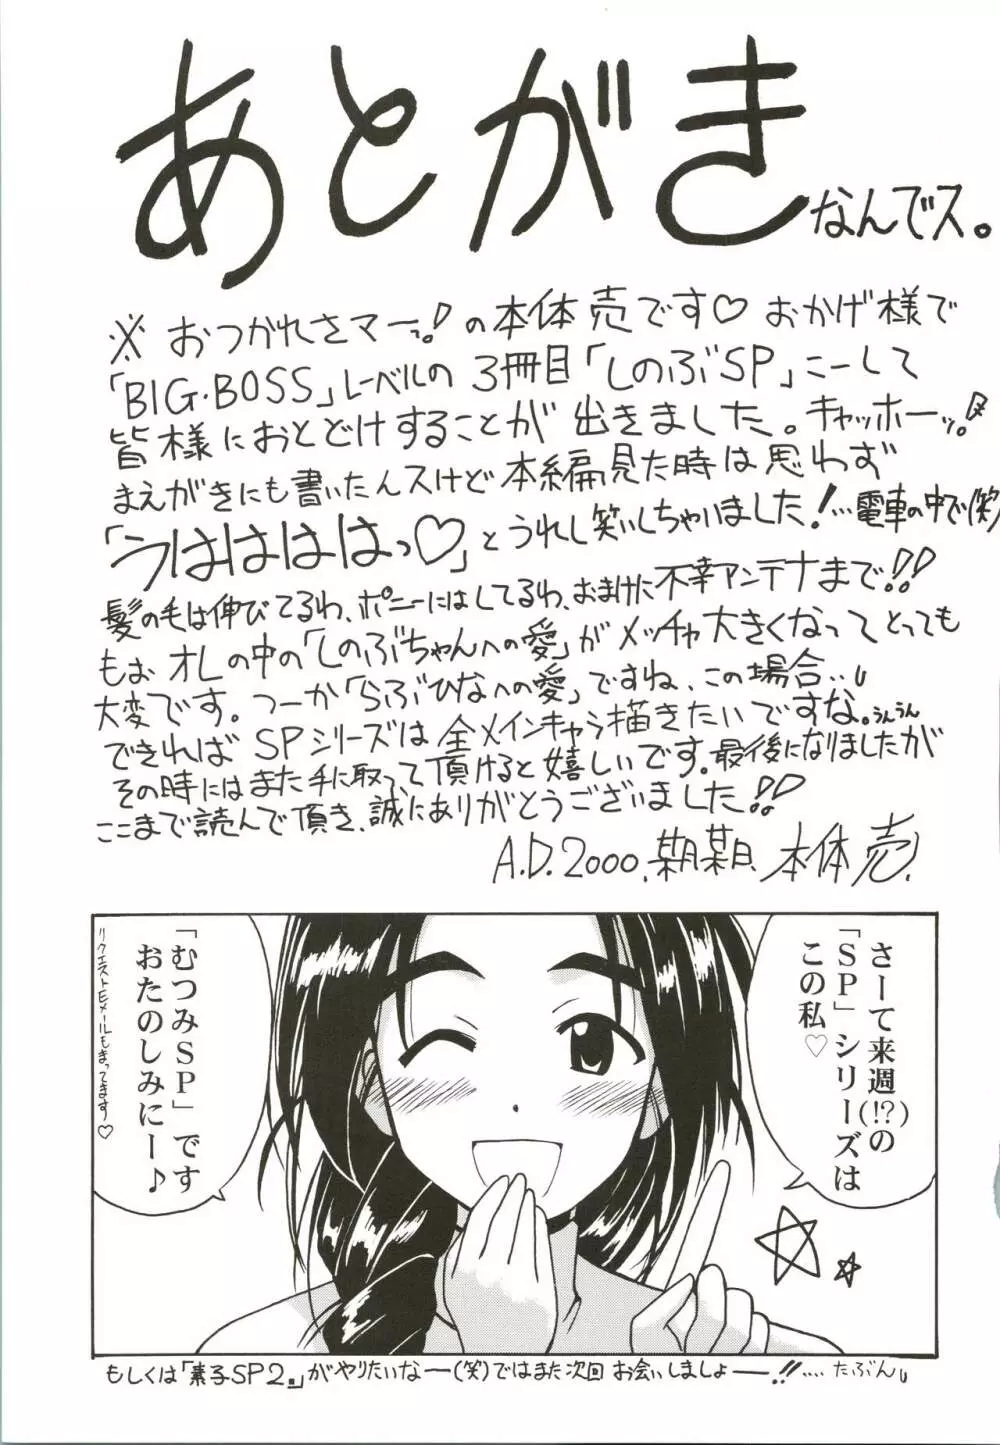 あとがき なんでス。
※おつかれさマーっ!の本体売です♡ おかげ様で
「BIG・BOSS」レーベルの3冊目「しのぶSP」こーして
皆様におとどけすることが出きました。キャッホーッ!
まえがきにも書いたんスけど本編見た時は思わず
「うはははは っ♡」とうれし笑いしちゃいました!…電車の中で(笑)
髪の毛は伸びてるわ、ポニーにはしてるわ、おまけに不幸アンテナまで!!
もぉ オレの中の「しのぶちゃんへの愛」がメッチャ大きくなってとっても
大変です。つーか「らぶひなへの愛」ですね、この場合…。
できれば SPシリーズは全メインキャラ描きたいですな。うんうん
その時にはまた手に取って頂けると嬉しいです。最後になりましたが
ここまで読んで頂き、誠にありがとうございました!!
A.D.2000.某月某日 本体売.
さーて来週(!?)の
「SP」シリーズは
この私♡
「むつみSP」です
おたのしみにー♪
リクエストEメールもまってます♡
もしくは「素子SP2」がやりたいなー(笑)ではまた次回 お会いしましょー!!……たぶん。